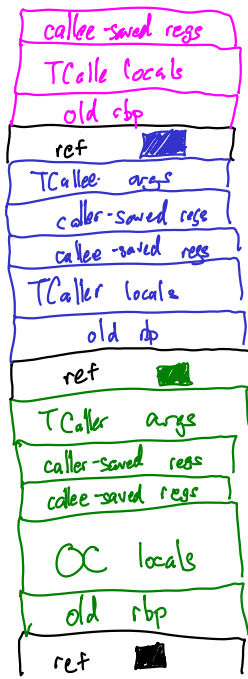 callee-saved regs
TCalle locals
old rbp
ref
TCallee args
caller-saved regs
callee-saved regs
TCaller locals
old rbp
ref
TCaller args
caller-saved regs
callee-saved regs
OC locals
old rbp
ref